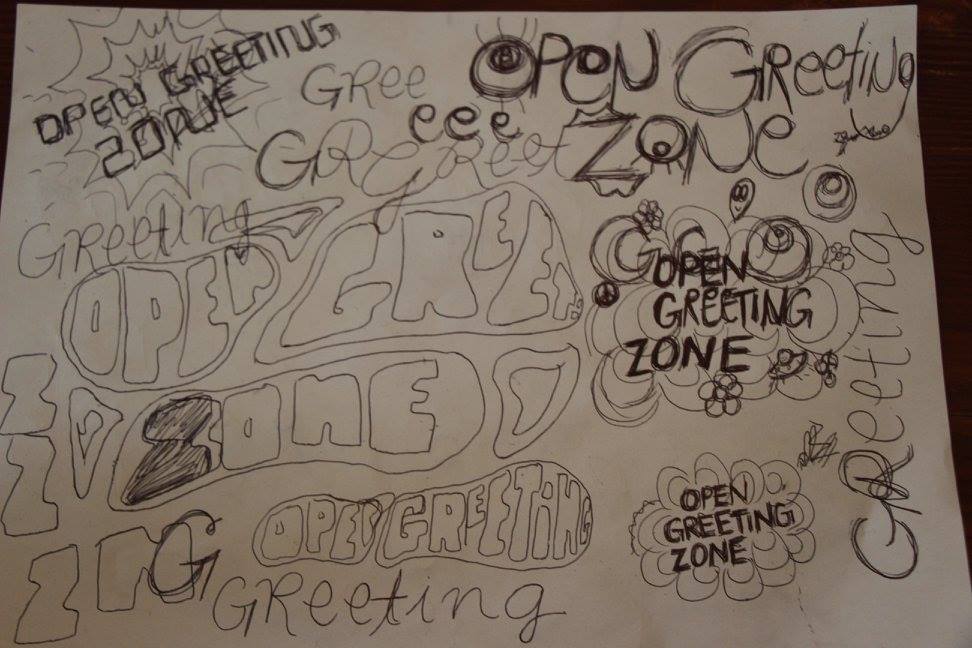 OPEN GREETING
ZONE
Gree
eee
GReGreet
OPEN GReetiNg
ZONe
Greeting
OPEN
GREE
ZONE
OPEN
GREETING
ZONE
Greeting
OPEN GREETING
GReeting
G
OPEN
GREETING
ZONE